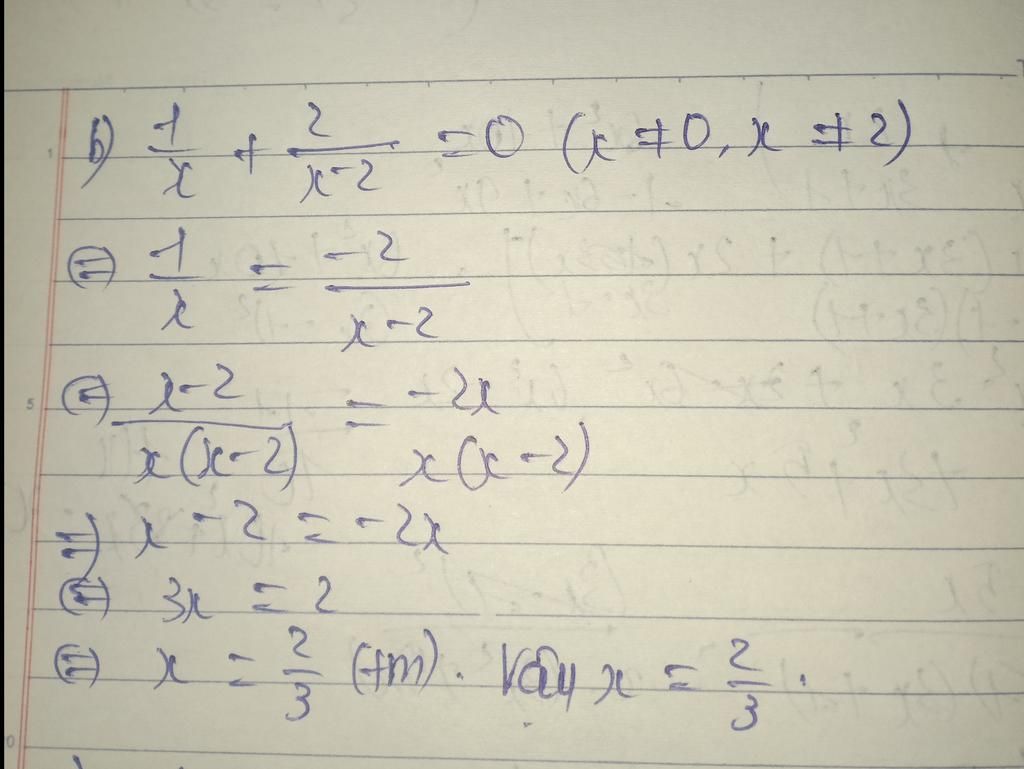 b) 1/x + 2/(x-2) = 0 (x ≠ 0, x ≠ 2)
⇔ 1/x = -2/(x-2)
⇔ (x-2)/(x(x-2)) = -2x/(x(x-2))
⇒ x - 2 = -2x
⇔ 3x = 2
⇔ x = 2/3 (tm). Vậy x = 2/3.